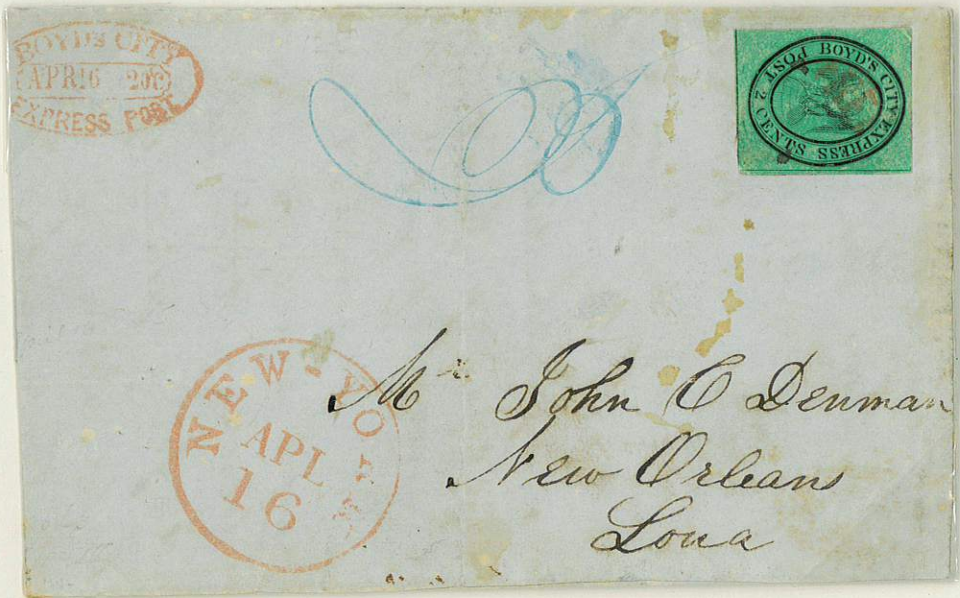 BOYD'S CITY
APR 16 20C
EXPRESS POST
BOYD'S CITY EXPRESS POST 2 CENTS.
NEW-YORK
APL
16
Mr John C Denman
New Orleans
Loua